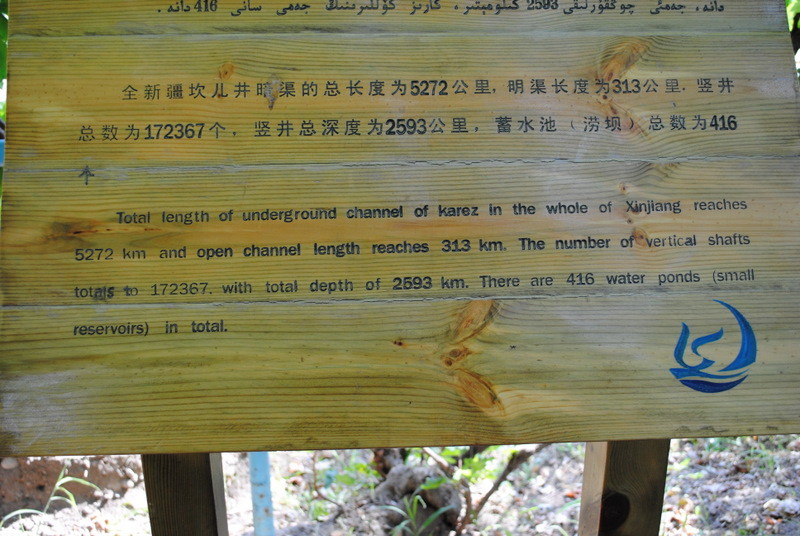 دانە، جەمئى چوڭقۇرلىقى 2593 كىلومېتىر، كارىز كۆللىرىنىڭ جەمى سانى 416 دانە.
全新疆坎儿井暗渠的总长度为5272公里，明渠长度为313公里．竖井
总数为172367个，竖井总深度为2593公里，蓄水池（涝坝）总数为416
个
Total length of underground channel of karez in the whole of Xinjiang reaches
5272 km and open channel length reaches 313 km. The number of vertical shafts
totals to 172367. with total depth of 2593 km. There are 416 water ponds (small
reservoirs) in total.